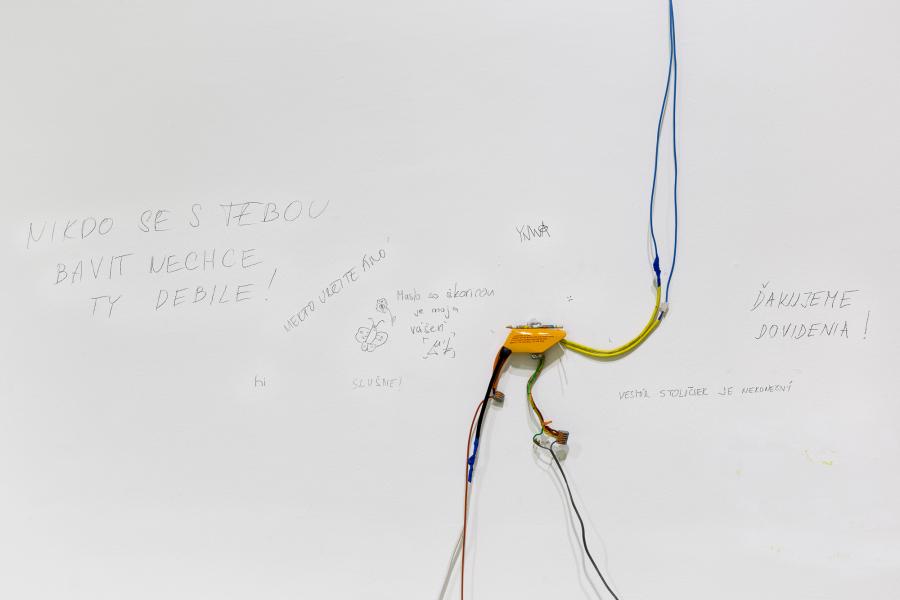 NIKDO SE S TEBOU
BAVIT NECHCE
TY DEBILE!
URČITE ÁNO
Maslo so škoricou
je moja
vášeň
hi
SLUŠNE!
ĎAKUJEME
DOVIDENIA!
VESMÍR STOLIČIEK JE NEKONEČNÝ